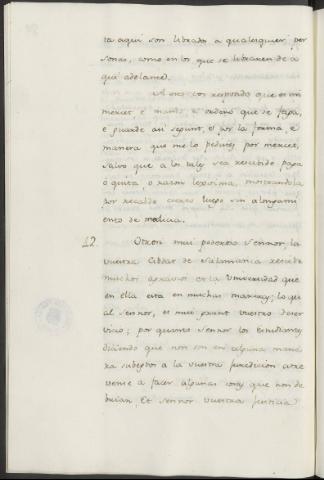 ta aquí son librados a qualesquier per
sonas, como en los que se libraren de a
quí adelante.
A esto vos respondo que es mi
mercet e mando e ordeno que se faga,
e guarde así segunt, e por la forma, e
manera que me lo pedistes por merced,
salvo que a los tales sea rescebido paga
o quita, o razon legítima, mostrandola
por recabdo cierto luego sin alongami
ento de malicia.
12. Otrosi mui poderoso Sennor, la
vuestra Cibdat de Salamanca rescibe
muchos agravios en la Universidad que
en ella esta en muchas maneras; lo qu
al sennor, es mui grant vuestro deser
vicio; por quanto sennor los Estudiantes
diciendo que non son en alguna mane
ra subgetos a la vuestra jurediccion atre
vense a facer algunas cosas que non de
bian, Et sennor vuestra justicia